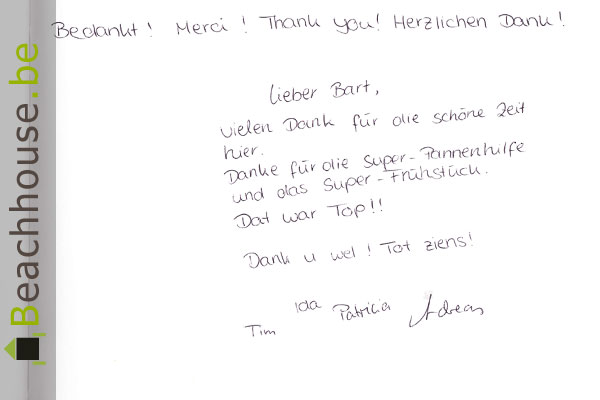 Bedankt! Merci! Thank you! Herzlichen Dank!
Lieber Bart,
vielen Dank für die schöne Zeit
hier.
Danke für die Super-Pannenhilfe
und das Super-Frühstück.
Dat war Top!!
Dank u wel! Tot ziens!
Tim Ida Patricia Andreas
Beachhouse.be